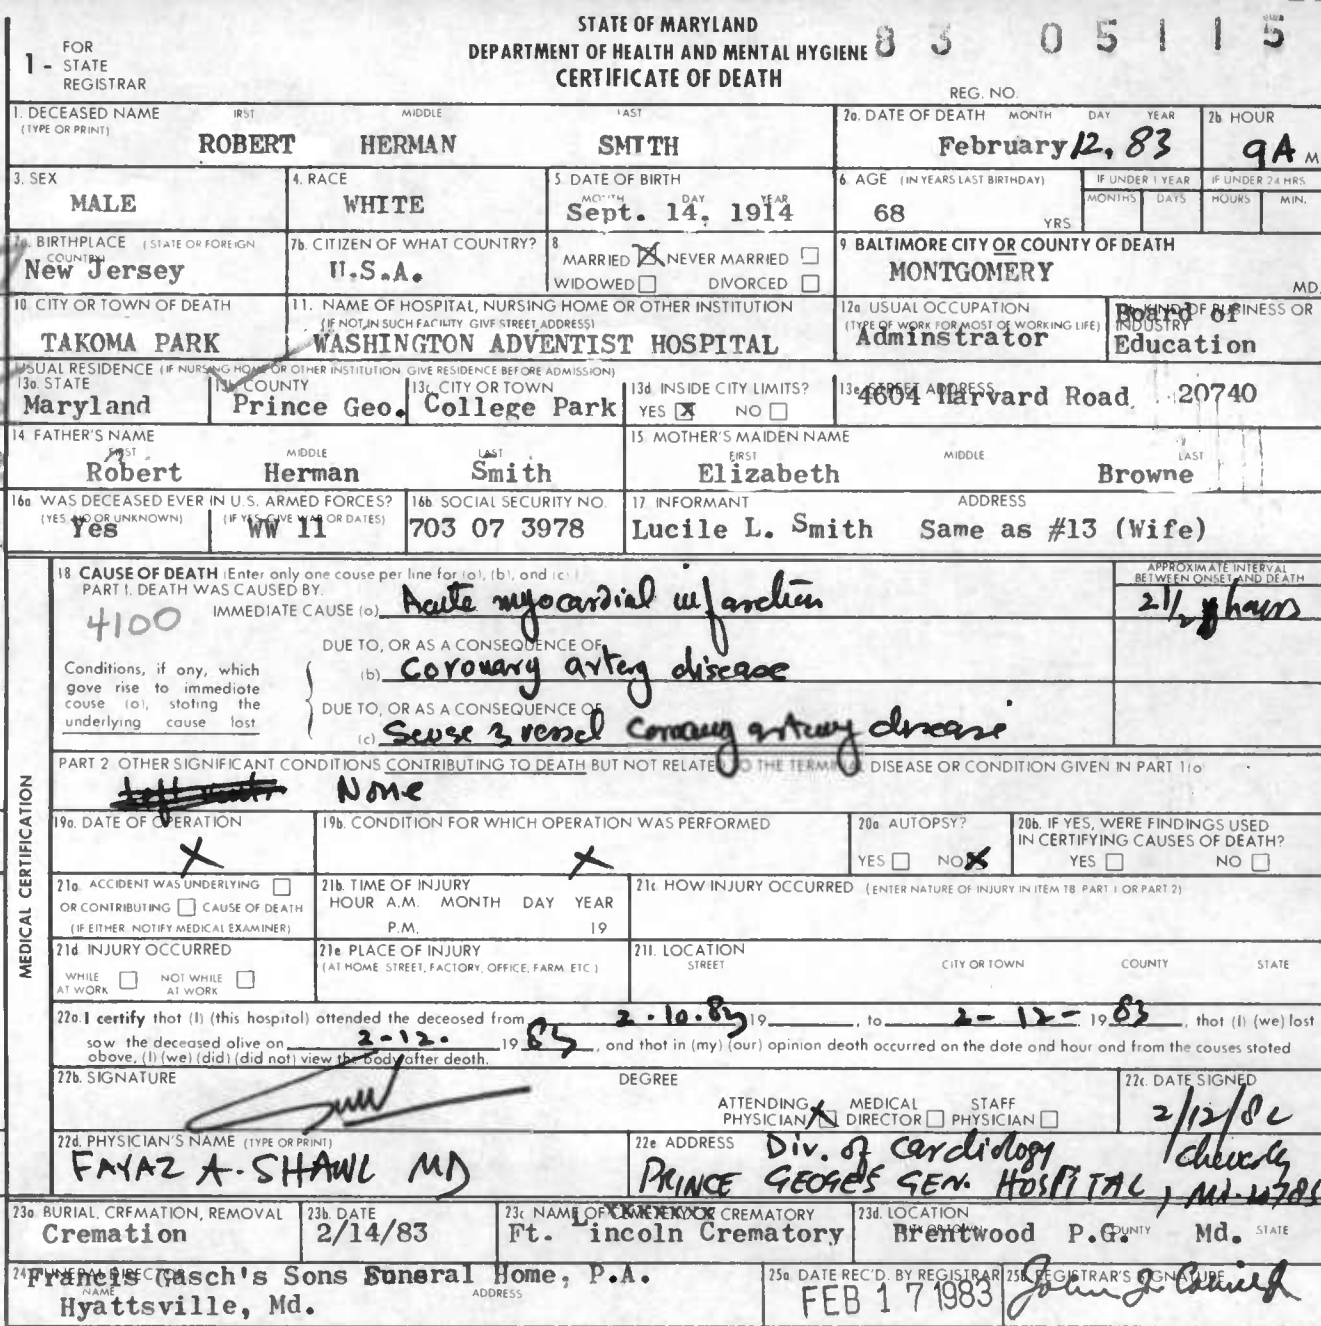 STATE OF MARYLAND
DEPARTMENT OF HEALTH AND MENTAL HYGIENE
CERTIFICATE OF DEATH
83 05115
1 - FOR STATE REGISTRAR
REG. NO.
1. DECEASED NAME (TYPE OR PRINT) IRST MIDDLE LAST
ROBERT HERMAN SMITH
2a. DATE OF DEATH MONTH DAY YEAR
February 12, 83
2b HOUR
9A M
3. SEX
MALE
4. RACE
WHITE
5 DATE OF BIRTH MONTH DAY YEAR
Sept. 14, 1914
6 AGE (IN YEARS LAST BIRTHDAY)
68 YRS
IF UNDER 1 YEAR MONTHS DAYS
IF UNDER 24 HRS HOURS MIN.
7a. BIRTHPLACE (STATE OR FOREIGN COUNTRY)
New Jersey
7b. CITIZEN OF WHAT COUNTRY?
U.S.A.
8 MARRIED NEVER MARRIED
WIDOWED DIVORCED
9 BALTIMORE CITY OR COUNTY OF DEATH
MONTGOMERY MD.
10 CITY OR TOWN OF DEATH
TAKOMA PARK
11. NAME OF HOSPITAL, NURSING HOME OR OTHER INSTITUTION
(IF NOT IN SUCH FACILITY GIVE STREET ADDRESS)
WASHINGTON ADVENTIST HOSPITAL
12a USUAL OCCUPATION
(TYPE OF WORK FOR MOST OF WORKING LIFE)
Adminstrator
KIND OF BUSINESS OR INDUSTRY
Board of
Education
USUAL RESIDENCE (IF NURSING HOME OR OTHER INSTITUTION GIVE RESIDENCE BEFORE ADMISSION)
13a. STATE
Maryland
13b. COUNTY
Prince Geo.
13c CITY OR TOWN
College Park
13d INSIDE CITY LIMITS?
YES X NO
13e STREET ADDRESS
4604 Harvard Road 20740
14 FATHER'S NAME FIRST MIDDLE LAST
Robert Herman Smith
15 MOTHER'S MAIDEN NAME FIRST MIDDLE LAST
Elizabeth Browne
16a WAS DECEASED EVER IN U.S. ARMED FORCES?
(YES, NO OR UNKNOWN) (IF YES GIVE WAR OR DATES)
Yes WW 11
16b SOCIAL SECURITY NO.
703 07 3978
17 INFORMANT ADDRESS
Lucile L. Smith Same as #13 (Wife)
MEDICAL CERTIFICATION
18 CAUSE OF DEATH (Enter only one cause per line for (a), (b), and (c))
PART 1. DEATH WAS CAUSED BY.
APPROXIMATE INTERVAL
BETWEEN ONSET AND DEATH
4100
IMMEDIATE CAUSE (a) Acute myocardial infarction
2 1/2 hours
DUE TO, OR AS A CONSEQUENCE OF
(b) Coronary artery disease
Conditions, if any, which
gave rise to immediate
cause (a), stating the
underlying cause last
DUE TO, OR AS A CONSEQUENCE OF
(c) 3 vessel coronary artery disease
PART 2 OTHER SIGNIFICANT CONDITIONS CONTRIBUTING TO DEATH BUT NOT RELATED TO THE TERMINAL DISEASE OR CONDITION GIVEN IN PART 1(a)
None
19a. DATE OF OPERATION
X
19b. CONDITION FOR WHICH OPERATION WAS PERFORMED
X
20a AUTOPSY?
YES NO X
20b. IF YES, WERE FINDINGS USED
IN CERTIFYING CAUSES OF DEATH?
YES NO
21a. ACCIDENT WAS UNDERLYING
OR CONTRIBUTING CAUSE OF DEATH
(IF EITHER NOTIFY MEDICAL EXAMINER)
21b. TIME OF INJURY
HOUR A.M. MONTH DAY YEAR
P.M. 19
21c HOW INJURY OCCURRED (ENTER NATURE OF INJURY IN ITEM 18 PART 1 OR PART 2)
21d INJURY OCCURRED
WHILE AT WORK NOT WHILE AT WORK
21e PLACE OF INJURY
(AT HOME STREET, FACTORY, OFFICE, FARM ETC)
21f. LOCATION
STREET CITY OR TOWN COUNTY STATE
22a. I certify that (I) (this hospital) attended the deceased from 2.10.83 19 , to 2-12- 19 83 , that (I) (we) last
saw the deceased alive on 2-12. 19 83 , and that in (my) (our) opinion death occurred on the date and hour and from the causes stated
above, (I) (we) (did) (did not) view the body after death.
22b. SIGNATURE DEGREE
ATTENDING PHYSICIAN X MEDICAL DIRECTOR STAFF PHYSICIAN
22c. DATE SIGNED
2/12/82
22d. PHYSICIAN'S NAME (TYPE OR PRINT)
FAYAZ A. SHAWL MD
22e ADDRESS
Div. of Cardiology
PRINCE GEOGE'S GEN. HOSPITAL, Cheverly
23a BURIAL, CREMATION, REMOVAL
Cremation
23b. DATE
2/14/83
23c NAME OF CREMATORY
Ft. Lincoln Crematory
23d. LOCATION COUNTY STATE
Brentwood P.G. Md.
24 FUNERAL DIRECTOR NAME ADDRESS
Francis Gasch's Sons Funeral Home, P.A.
Hyattsville, Md.
25a DATE REC'D. BY REGISTRAR
FEB 17 1983
25b REGISTRAR'S SIGNATURE